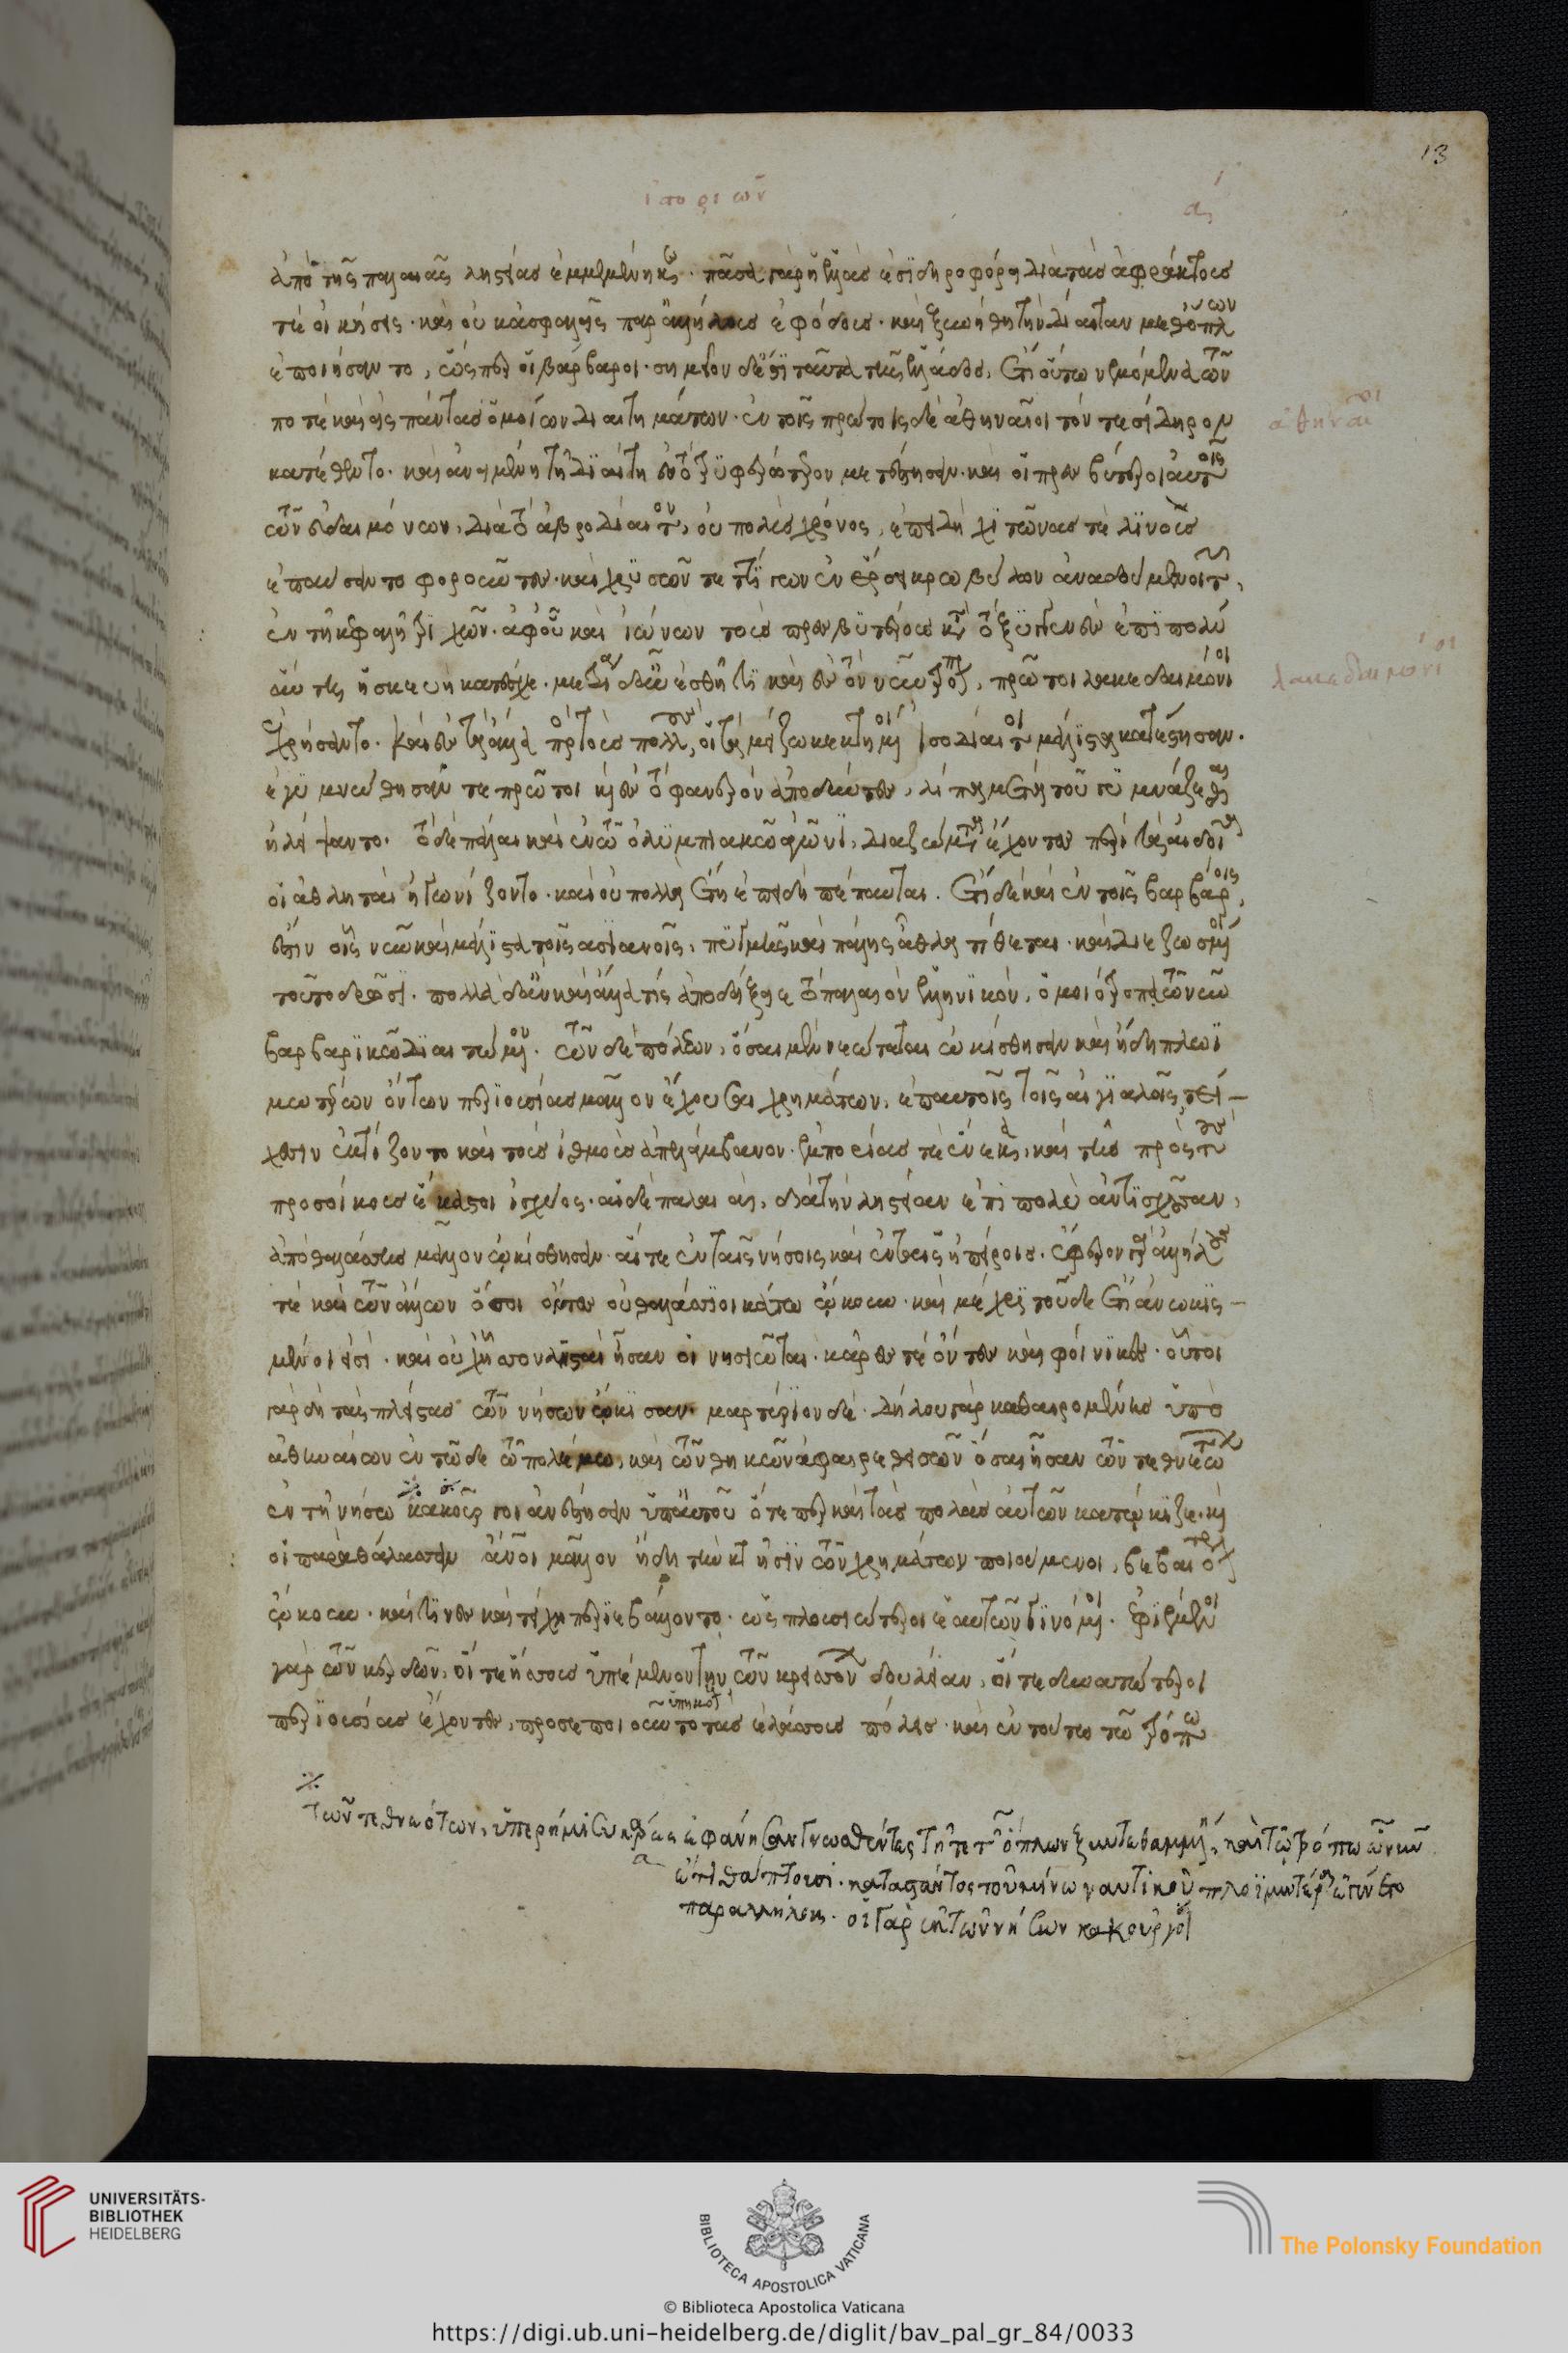 ἱστοριῶν α
13
ἀπὸ τῆς παλαιᾶς ληστείας ἐμμεμένηκε· πᾶσα γὰρ ἡ ἑλλὰς ἐσιδηροφόρει διὰ τὰς ἀφράκτους
τὲ οἰκήσεις· καὶ οὐκ ἀσφαλεῖς παρ' ἀλλήλους ἐφόδους· καὶ ξυνήθη τὴν δίαιταν μεθ' ὅπλων
ἐποιήσαντο, ὥσπερ οἱ βάρβαροι· σημεῖον δ' ἐστὶ ταῦτα τῆς ἑλλάδος, ἔτι οὕτω νεμόμενα τῶν
ποτὲ καὶ ἐς πάντας ὁμοίων διαιτημάτων· ἐν τοῖς πρώτοις δὲ ἀθηναῖοι τόν τε σίδηρον
ἀθηναῖοι
κατέθεντο· καὶ ἀνειμένη τῇ διαίτη ἐς τὸ τρυφερώτερον μετέστησαν· καὶ οἱ πρεσβύτεροι αὐτοῖς
τῶν εὐδαιμόνων, διὰ τὸ ἁβροδίαιτον, οὐ πολὺς χρόνος, ἐπειδὴ χιτῶνας τὲ λινοῦς
ἐπαύσαντο φοροῦντες· καὶ χρυσῶν τεττίγων ἐν ἔρσει κρωβύλον ἀναδούμενοι τῶν,
ἐν τῇ κεφαλῇ τριχῶν· ἀφ' οὗ καὶ ἰώνων τοὺς πρεσβυτέρους κατὰ τὸ ξυγγενὲς ἐπὶ πολὺ
αὕτη ἡ σκευὴ κατέσχε· μετρία δ' αὖ ἐσθῆτι καὶ ἐς τὸν νῦν τρόπον, πρῶτοι λακεδαιμόνιοι
λακεδαιμόνιοι
ἐχρήσαντο· καὶ ἐς τὰ ἄλλα πρὸς τοὺς πολλοὺς, οἱ τὰ μείζω κεκτημένοι ἰσοδίαιτοι μάλιστα κατέστησαν·
ἐγυμνώθησάν τε πρῶτοι καὶ ἐς τὸ φανερὸν ἀποδύντες, λίπα μετὰ τοῦ γυμνάζεσθαι
ἠλείψαντο· τὸ δὲ πάλαι καὶ ἐν τῷ ὀλυμπιακῷ ἀγῶνι, διαζώματα ἔχοντες περὶ τὰ αἰδοῖα
οἱ ἀθληταὶ ἠγωνίζοντο· καὶ οὐ πολλὰ ἔτη ἐπειδὴ πέπαυται. ἔτι δὲ καὶ ἐν τοῖς βαρβάροις,
ἔστιν οἷς νῦν καὶ μάλιστα τοῖς ἀσιανοῖς, πυγμῆς καὶ πάλης ἆθλα τίθεται· καὶ διεζωσμένοι
τοῦτο δρῶσι· πολλὰ δ' ἂν καὶ ἄλλά τις ἀποδείξειε τὸ παλαιὸν ἑλληνικὸν, ὁμοιότροπα τῶ νῦν
βαρβαρικῶ διαιτώμενον· τῶν δὲ πόλεων, ὅσαι μὲν νεώταται ὠκίσθησαν καὶ ἤδη πλωϊ
μωτέρων ὄντων περιουσίας μᾶλλον ἔχουσαι χρημάτων, ἐπ' αὐτοῖς τοῖς αἰγιαλοῖς τεί–
χεσιν ἐκτίζοντο καὶ τοὺς ἰσθμοὺς ἀπελάμβανον· ἐμπορίας τὲ ἕνεκα, καὶ τῆς πρὸς τοὺς
προσοίκους ἕκαστοι ἰσχύος· αἱ δὲ παλαιαὶ, διὰ τὴν ληστείαν ἐπὶ πολὺ ἀντισχοῦσαν,
ἀπὸ θαλάσσης μᾶλλον ὠκίσθησαν· αἵ τε ἐν ταῖς νήσοις καὶ ἐν ταῖς ἠπείροις. ἔφερον γὰρ ἀλλήλους
τὲ καὶ τῶν ἄλλων ὅσοι ὄντες οὐ θαλάσσιοι κάτω ᾤκουν· καὶ μέχρι τοῦδε ἔτι ἀνωκισ–
μένοι εἰσί· καὶ οὐχ ἧσσον λησταὶ ἦσαν οἱ νησιῶται· κᾶρες τὲ ὄντες καὶ φοίνικες· οὗτοι
γὰρ δὴ τὰς πλείστας τῶν νήσων ᾤκισαν· μαρτύριον δὲ· δήλου γὰρ καθαιρομένης ὑπὸ
ἀθηναίων ἐν τῶδε τῶ πολέμω, καὶ τῶν θηκῶν ἀφαιρεθεισῶν ὅσαι ἦσαν τῶν τεθνεώτων
ἐν τῇ νήσω κακοῦργοι ἀνέστησαν ὑπ' αὐτοῦ ὅτε περ καὶ τὰς πολλὰς αὐτῶν κατώκιζε· καὶ
οἱ παρὰ θάλασσαν ἄνθρωποι μᾶλλον ἤδη τὴν κτῆσιν τῶν χρημάτων ποιούμενοι, βεβαιότερον
ᾤκουν· καί τινες καὶ τείχη περιεβάλλοντο· ὡς πλουσιώτεροι ἑαυτῶν γινόμενοι· ἐφιέμενοι
γὰρ τῶν κερδῶν, οἵ τε ἥσσους ὑπέμενον τὴν τῶν κρεισσόνων δουλείαν, οἵ τε δυνατώτεροι
ὑπηκόους
περιουσίας ἔχοντες, προσεποιοῦντο τὰς ἐλάσσους πόλεις· καὶ ἐν τούτω τῶ τρόπω
τῶν τεθνεότων, ὑπὲρ ἥμισυ κᾶρες ἐφάνησαν γνωσθέντες τῆ τε τῶν ὅπλων ξυντεθαμμένη, καὶ τῷ τρόπω ᾧ νῦν
ἔτι θάπτουσι· καταστάντος τοῦ μίνω ναυτικοῦ πλοϊμώτερα ἐγένετο
παρ' ἀλλήλους· οἱ γὰρ ἐκ τῶν νήσων κακοῦργοι
UNIVERSITÄTS-
BIBLIOTHEK
HEIDELBERG
BIBLIOTECA APOSTOLICA VATICANA
The Polonsky Foundation
© Biblioteca Apostolica Vaticana
https://digi.ub.uni-heidelberg.de/diglit/bav_pal_gr_84/0033